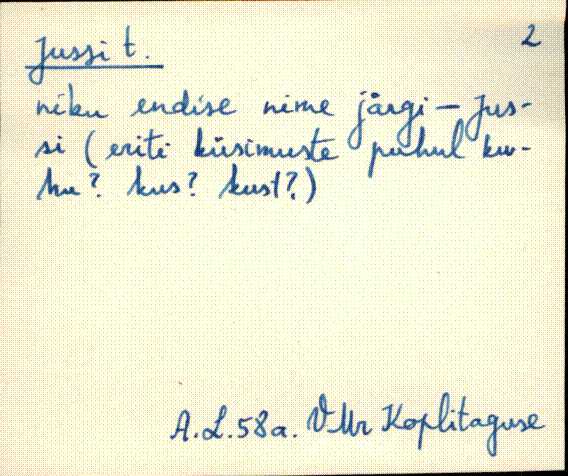 Jussi t. 2
niku endise nime järgi — Jus-
si (eriti küsimuste puhul ku-
hu? kus? kust?)
A.L.58a. VMr Koplitaguse